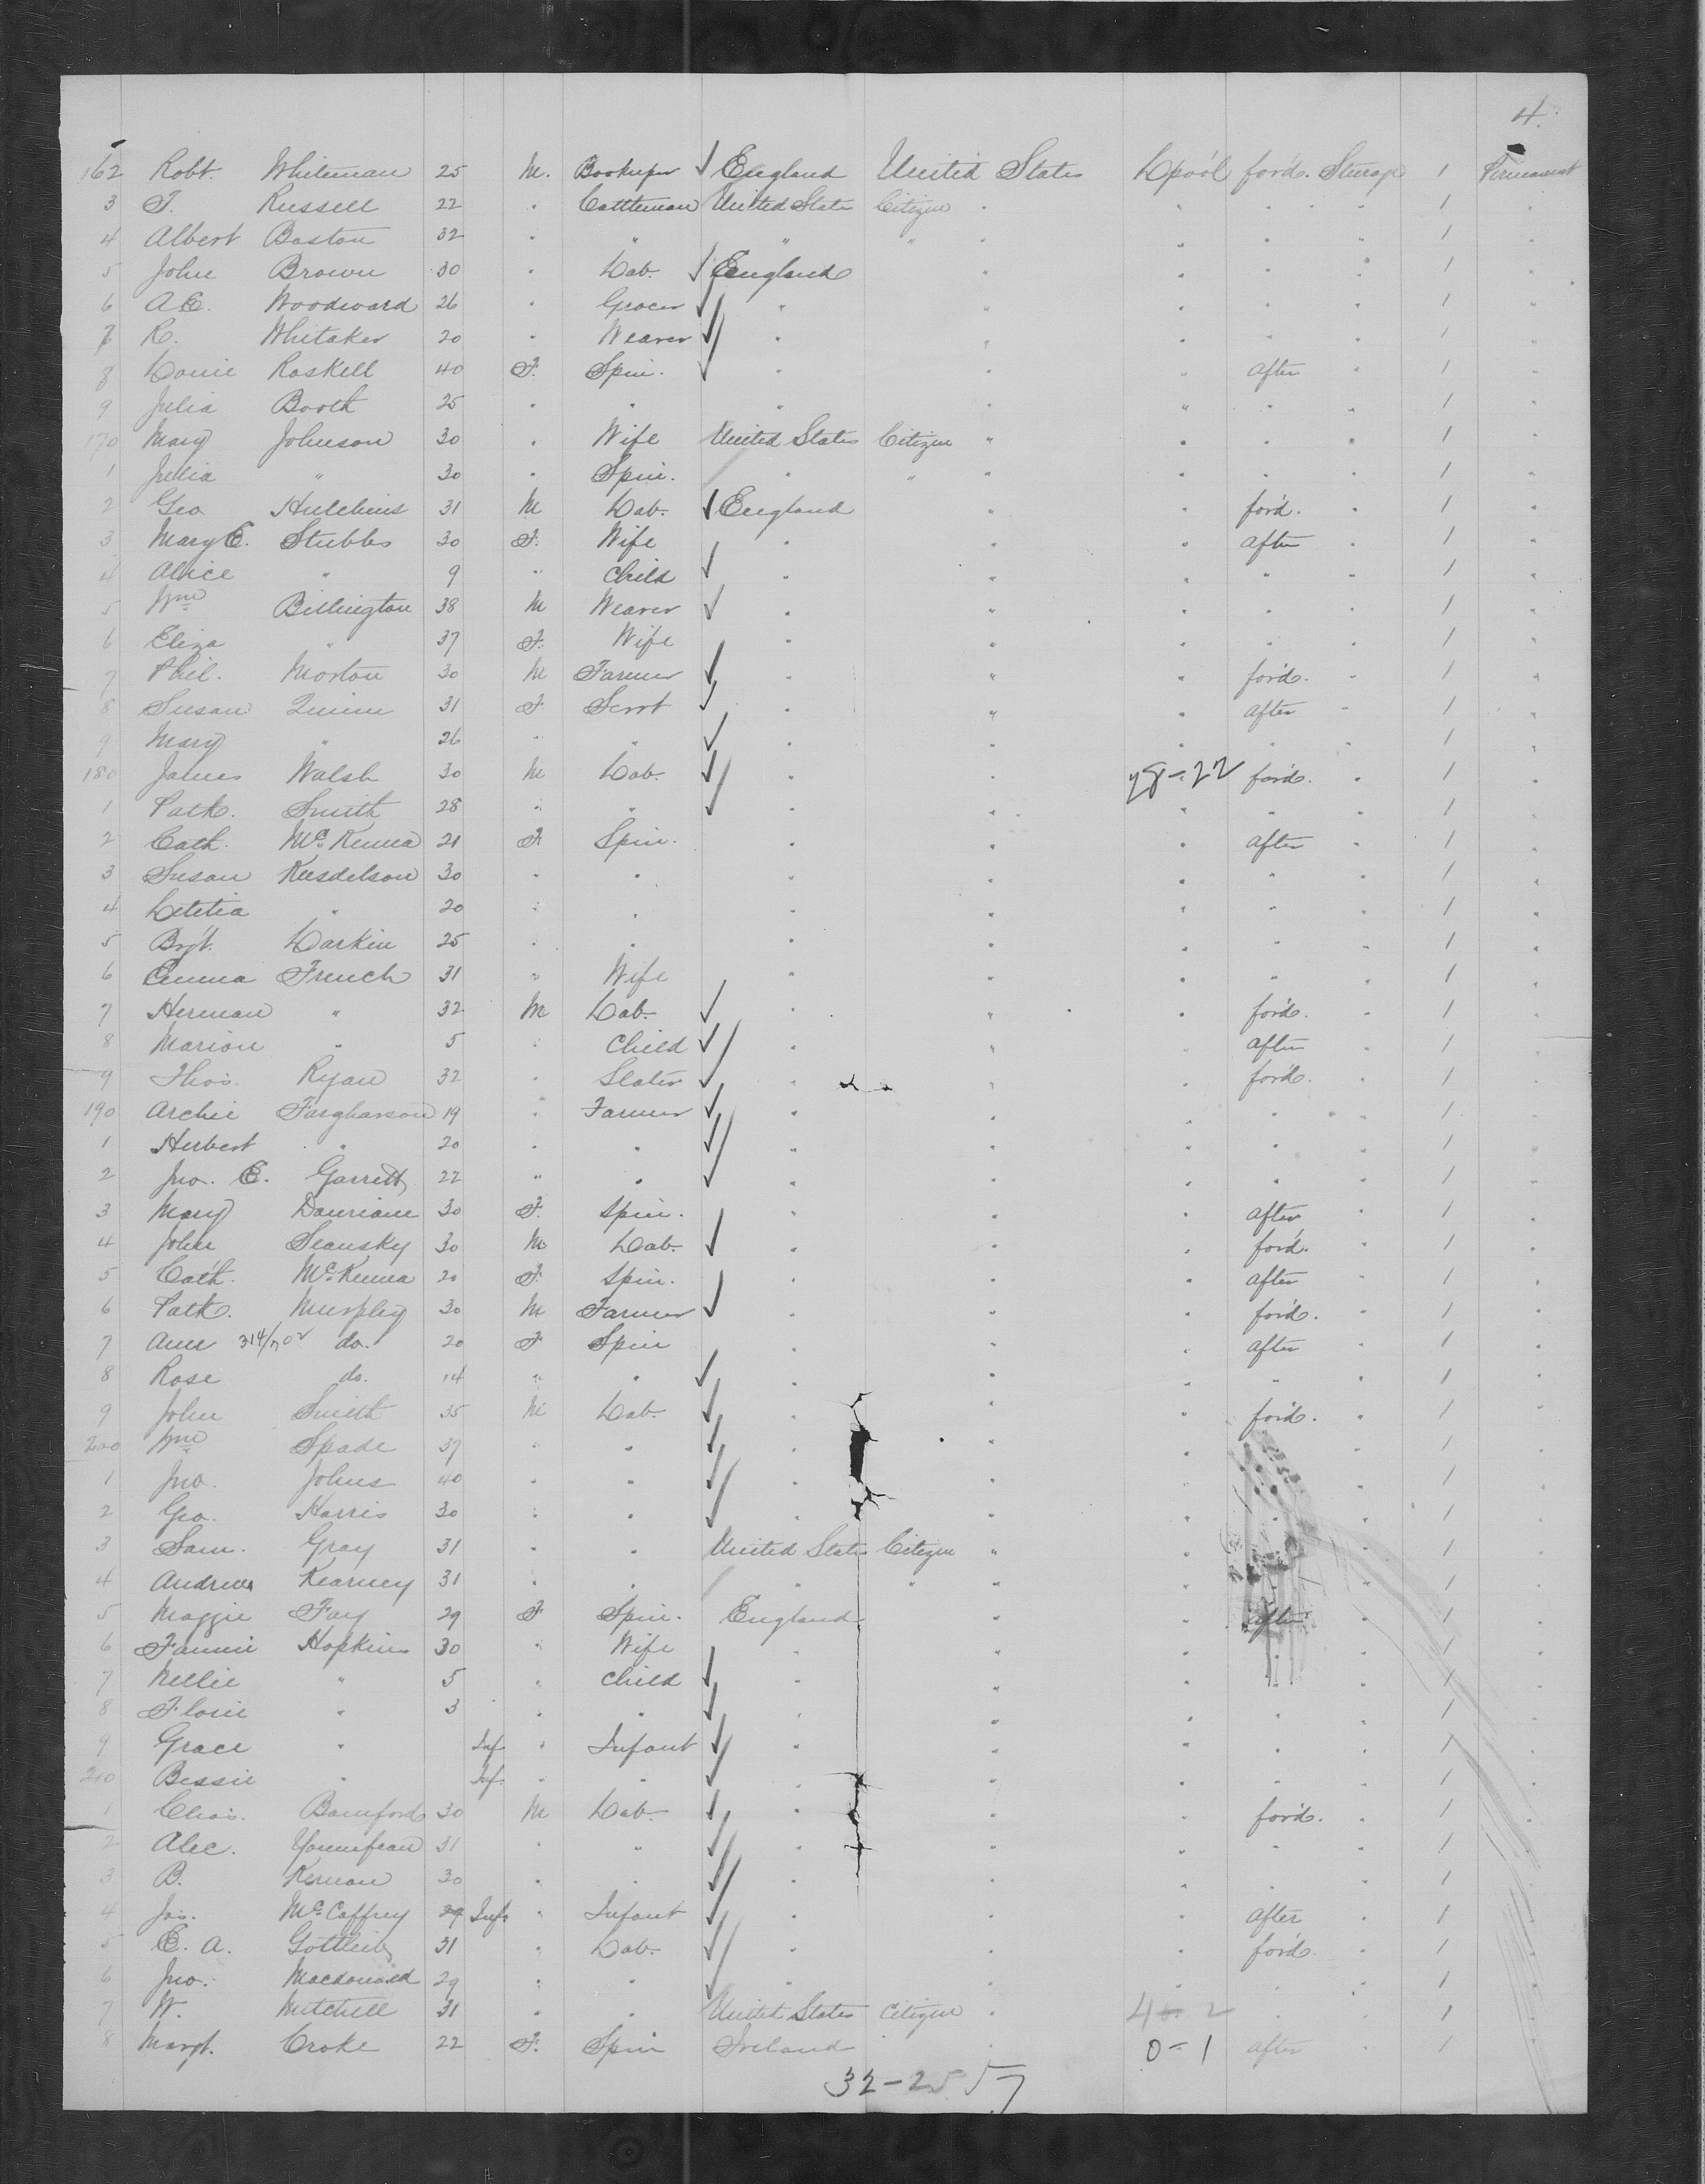 4.
162 Robt. Whiteman 25 M. Bookeeper England United States L'pool for'd. Steerage 1 Permanent
3 T. Russell 22 " Cattleman United States Citizen " " " " 1 "
4 Albert Baston 32 " " " " " " " " 1 "
5 John Brown 30 " Lab. England " " " " 1 "
6 A.E. Woodward 26 " Grocer " " " " " 1 "
7 R. Whitaker 20 " Weaver " " " " " 1 "
8 Louie Roskell 40 F. Spin. " " " after " 1 "
9 Julia Booth 25 " " " " " " " 1 "
170 Mary Johnson 30 " Wife United States Citizen " " " " 1 "
1 Julia " 30 " Spin. " " " " " " 1 "
2 Geo Hutchins 31 M Lab. England " " for'd. " 1 "
3 Mary E. Stubbs 30 F. Wife " " " after " 1 "
4 Alice " 9 " Child " " " " " 1 "
5 Wm Billington 38 M Weaver " " " " " 1 "
6 Eliza " 37 F. Wife " " " " " 1 "
7 Phil. Morton 30 M Farmer " " " for'd. " 1 "
8 Susan Quinn 31 F. Servt " " " after " 1 "
9 Mary " 26 " " " " " " " 1 "
180 James Walsh 30 M Lab. " " 28-22 for'd. " 1 "
1 Patk. Smith 28 " " " " " " " 1 "
2 Cath. McKenna 21 F Spin. " " " after " 1 "
3 Susan 30 " " " " " " " 1 "
4 Letitia " 20 " " " " " " " 1 "
5 Brgt. Larkin 25 " " " " " " " 1 "
6 Emma French 31 " Wife " " " " " 1 "
7 Herman " 32 M Lab. " " " for'd. " 1 "
8 Marion " 5 " Child " " " after " 1 "
9 Thos. Ryan 32 " Slater " " " for'd. " 1 "
190 Archie Farqharson 19 " Farmer " " " " " 1 "
1 Herbert " 20 " " " " " " " 1 "
2 Jno. E. Garrett 22 " " " " " " " 1 "
3 Mary 30 F. Spin. " " " after " 1 "
4 John Seansky 30 M Lab. " " " for'd. " 1 "
5 Cath. McKenna 20 F. Spin. " " " after " 1 "
6 Patk. Murphy 30 M Farmer " " " for'd. " 1 "
7 Ann do. 20 F Spin " " " after " 1 "
8 Rose do. 14 " " " " " " " 1 "
9 John Smith 35 M Lab. " " " for'd. " 1 "
200 Wm Spade 37 " " " " " " 1 "
1 Jno. Johns 40 " " " " " " 1 "
2 Geo. Harris 30 " " " " " " " 1 "
3 Sam. Gray 31 " " United States Citizen " " " 1 "
4 Andrew Kearney 31 " " " " " " " 1 "
5 Maggie Fay 29 F Spin. England " " after " 1 "
6 Fannie Hopkins 30 " Wife " " " " " 1 "
7 Nellie " 5 " Child " " " " " 1 "
8 Florie " 3 " " " " " " " 1 "
9 Grace " Inf " Infant " " " " " 1 "
210 Bessie " Inf. " " " " " " " 1 "
1 Chas. Bamford 30 M Lab. " " " for'd. " 1 "
2 Alec. 31 " " " " " " " 1 "
3 B. Kernan 30 " " " " " " " 1 "
4 Jas. McCaffrey Inf. " Infant " " " after " 1 "
5 E. A. Gottleib 31 " Lab. " " " for'd. " 1 "
6 Jno. Macdonald 29 " " " " " " " 1 "
7 W. Mitchell 31 " " United States Citizen " 4-2 " " 1 "
8 Margt. Croke 22 F. Spin Ireland " 0-1 after " 1
32-25 57